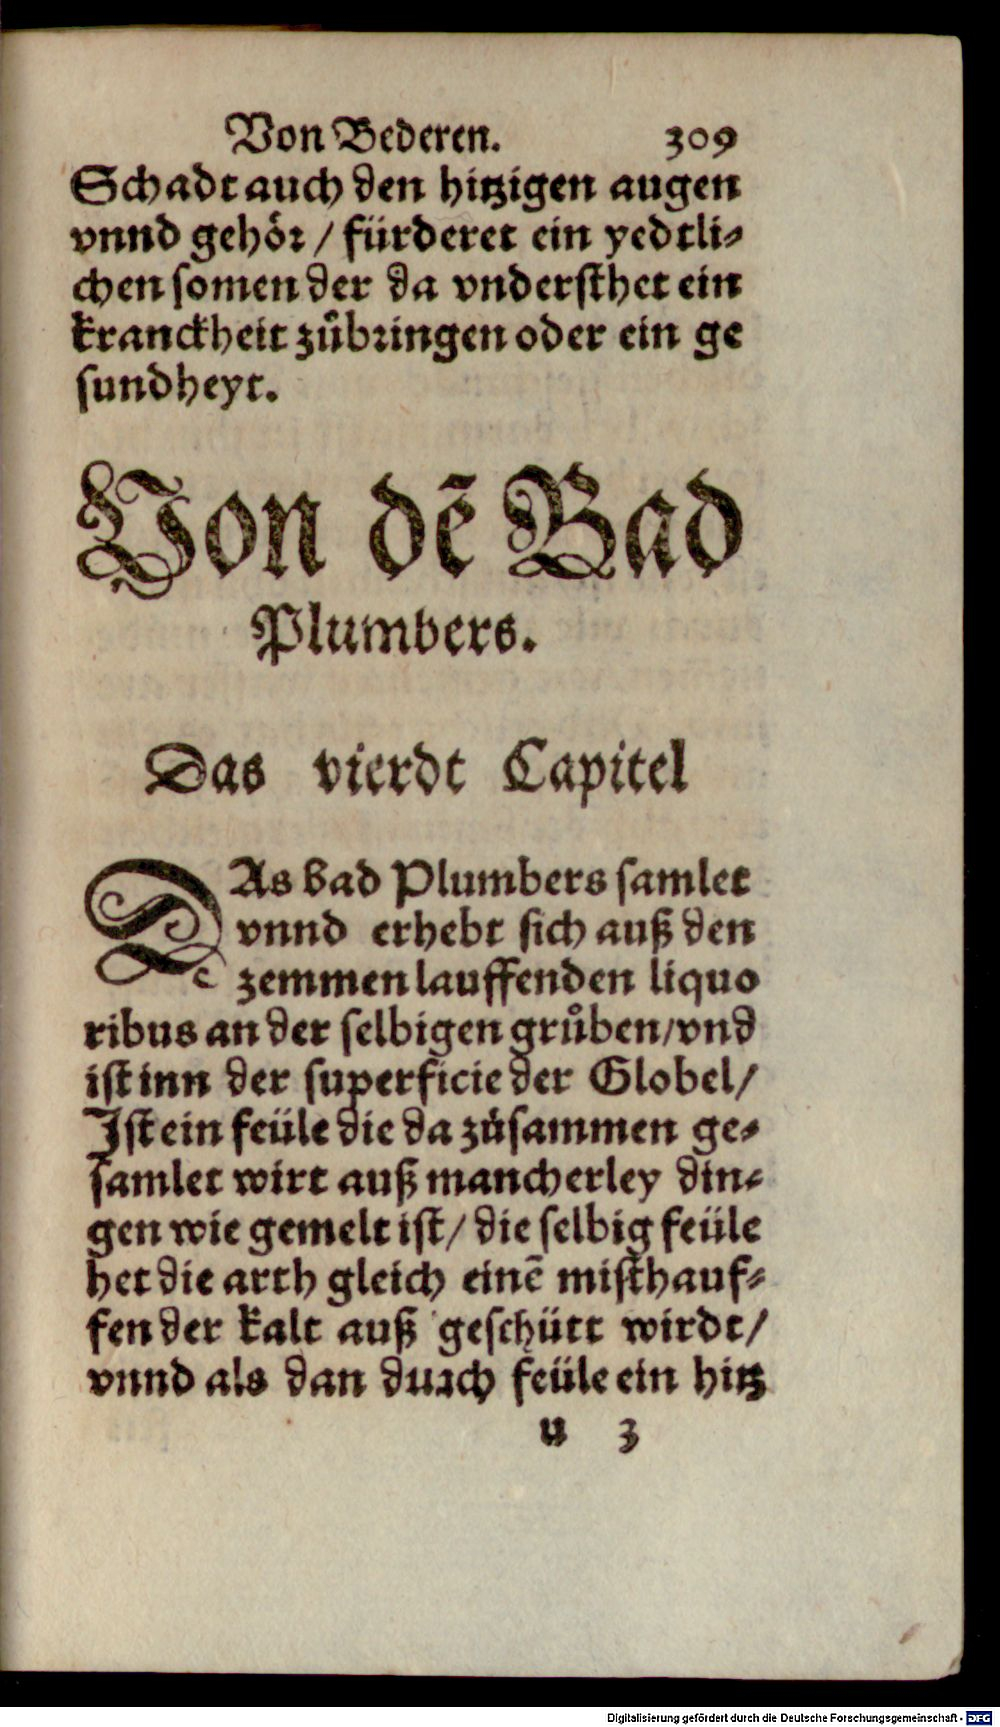 Von Bederen. 309
Schadt auch den hitzigen augen
vnnd gehör / fürderet ein yedtli-
chen somen der da vndersthet ein
kranckheit zůbringen oder ein ge
sundheyt.
Von dē Bad
Plumbers.
Das vierdt Capitel
DAs bad Plumbers samlet
vnnd erhebt sich auß den
zemmen lauffenden liquo
ribus an der selbigen grůben/vnd
ist inn der superficie der Globel/
Ist ein feüle die da zůsammen ge-
samlet wirt auß mancherley din-
gen wie gemelt ist/ die selbig feüle
het die arth gleich einē misthauf-
fen der kalt auß geschütt wirdt/
vnnd als dan durch feüle ein hitz
u 3
Digitalisierung gefördert durch die Deutsche Forschungsgemeinschaft - DFG